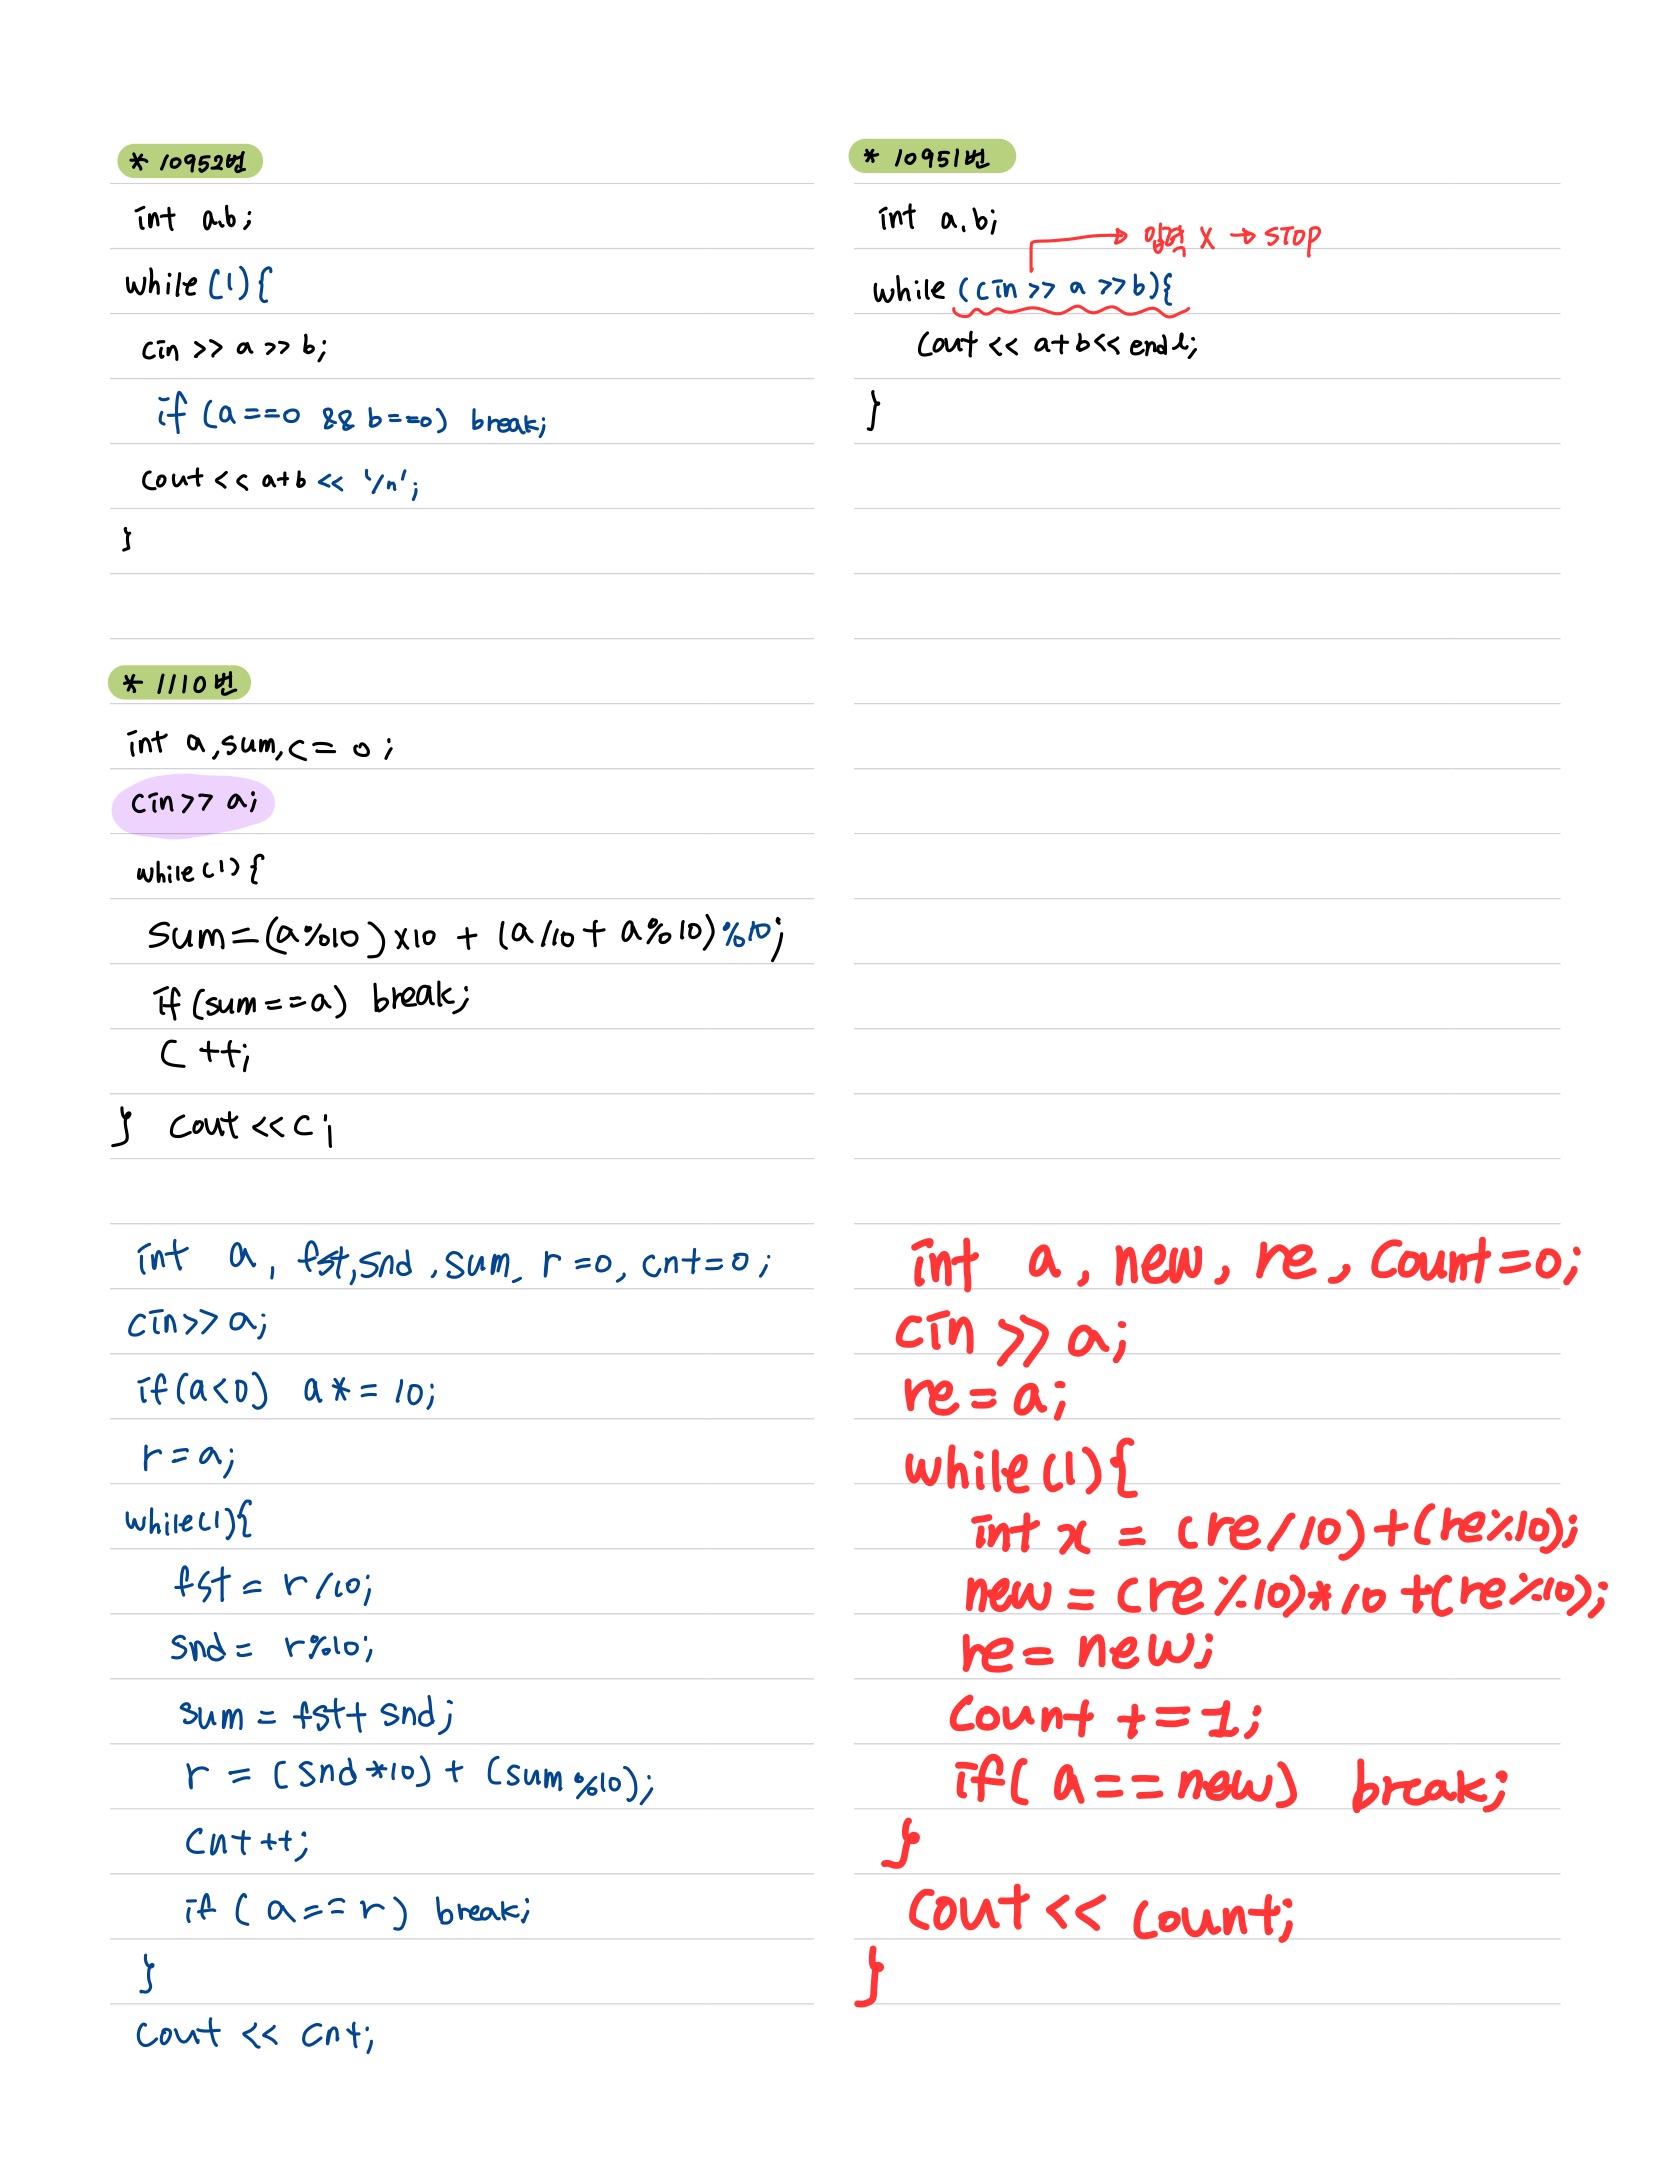 * 10952번
int a.b;
while (1){
cin >> a >> b;
if (a==0 && b==0) break;
cout << a+b << '/n';
}
* 10951번
int a.b;
입력 X → STOP
while (cin >> a >> b){
cout << a+b << endl;
}
* 1110번
int a,sum,c= 0;
cin>> a;
while(1){
sum=(a%10)x10 + (a/10+ a%10)%10;
if(sum==a) break;
C ++;
} cout <<c;
int a, fst,snd,sum, r=0, cnt=0;
cin>> a;
if(a<0) a*=10;
r=a;
while(1){
fst= r/10;
snd= r%10;
sum= fst+ snd;
r = (snd*10) + (sum%10);
cnt++;
if (a==r) break;
}
cout << cnt;
int a, new, re, count=0;
cin >> a;
re=a;
while(1){
int x = (re/10)+(re%10);
new=(re%10)*10+(re%10);
re= new;
count +=1;
if(a==new) break;
}
cout << count;
}